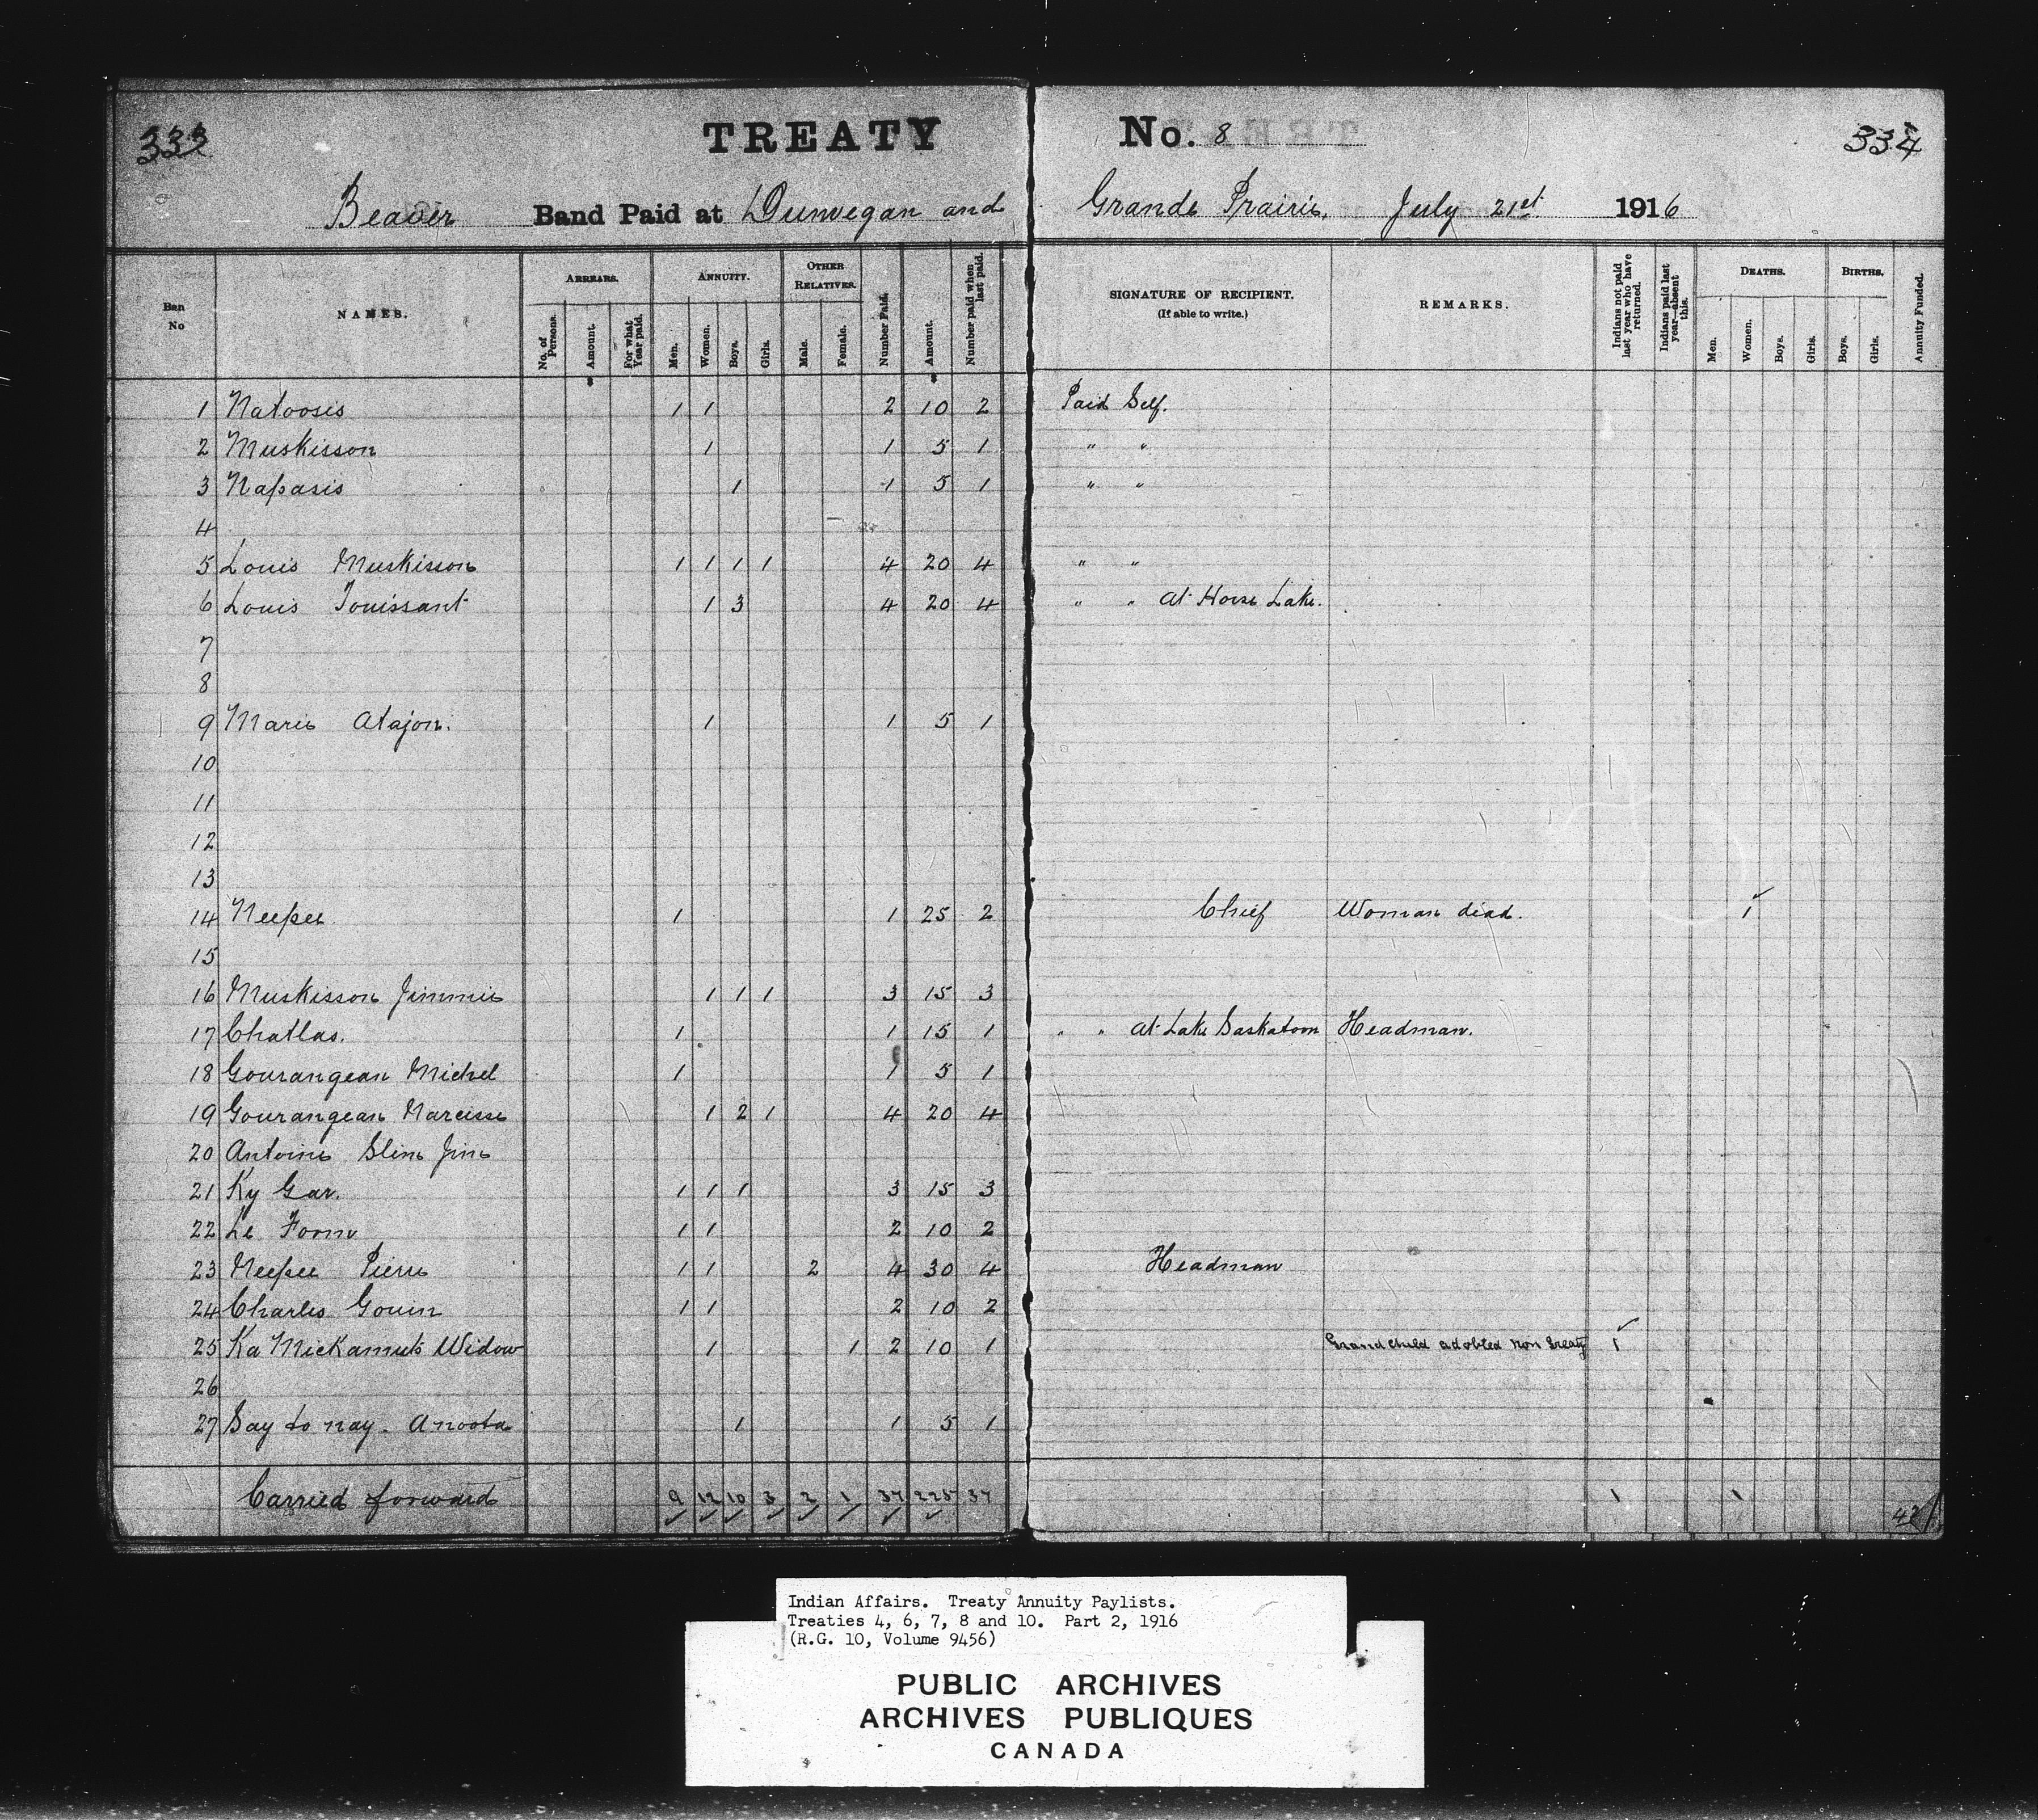 333 TREATY No. 8 334
Beaver Band Paid at Dunvegan and Grande Prairie, July 21st 1916
Ban No NAMES. ARREARS. ANNUITY. OTHER RELATIVES. Number Paid. Amount. Number paid when last paid. SIGNATURE OF RECIPIENT. (If able to write.) REMARKS. Indians not paid last year who have returned. Indians paid last year—absent this. DEATHS. BIRTHS. Annuity Funded.
No. of Persons. Amount. For what Year paid. Men. Women. Boys. Girls. Male. Female. Men. Women. Boys. Girls. Boys. Girls.
1 Natoosis 1 1 2 10 2 Paid Self.
2 Muskisson 1 1 5 1 " "
3 Napasis 1 1 5 1 " "
4
5 Louis Muskisson 1 1 1 1 4 20 4 " "
6 Louis Touissant 1 3 4 20 4 " " at Horse Lake.
7
8
9 Marie Atajon. 1 1 5 1
10
11
12
13
14 Neepee 1 1 25 2 Chief Woman died. 1
15
16 Muskisson Jimmie 1 1 1 3 15 3
17 Chatlas. 1 1 15 1 " " at Lake Saskatoon Headman.
18 Gourangean Michel 1 1 5 1
19 Gourangean Narcisse 1 2 1 4 20 4
20 Antoine Slim Jim
21 Ky Gar. 1 1 1 3 15 3
22 Le Form 1 1 2 10 2
23 Neepee Pierre 1 1 2 4 30 4 Headman
24 Charles Gouin 1 1 2 10 2
25 Ka Mickamuts Widow 1 1 2 10 1 Grandchild adobted non Treaty 1
26
27 Say to nay - Anoota 1 1 5 1
Carried forward 9 12 10 3 2 1 37 225 37 1 1
Indian Affairs. Treaty Annuity Paylists.
Treaties 4, 6, 7, 8 and 10. Part 2, 1916
(R.G. 10, Volume 9456)
PUBLIC ARCHIVES
ARCHIVES PUBLIQUES
CANADA